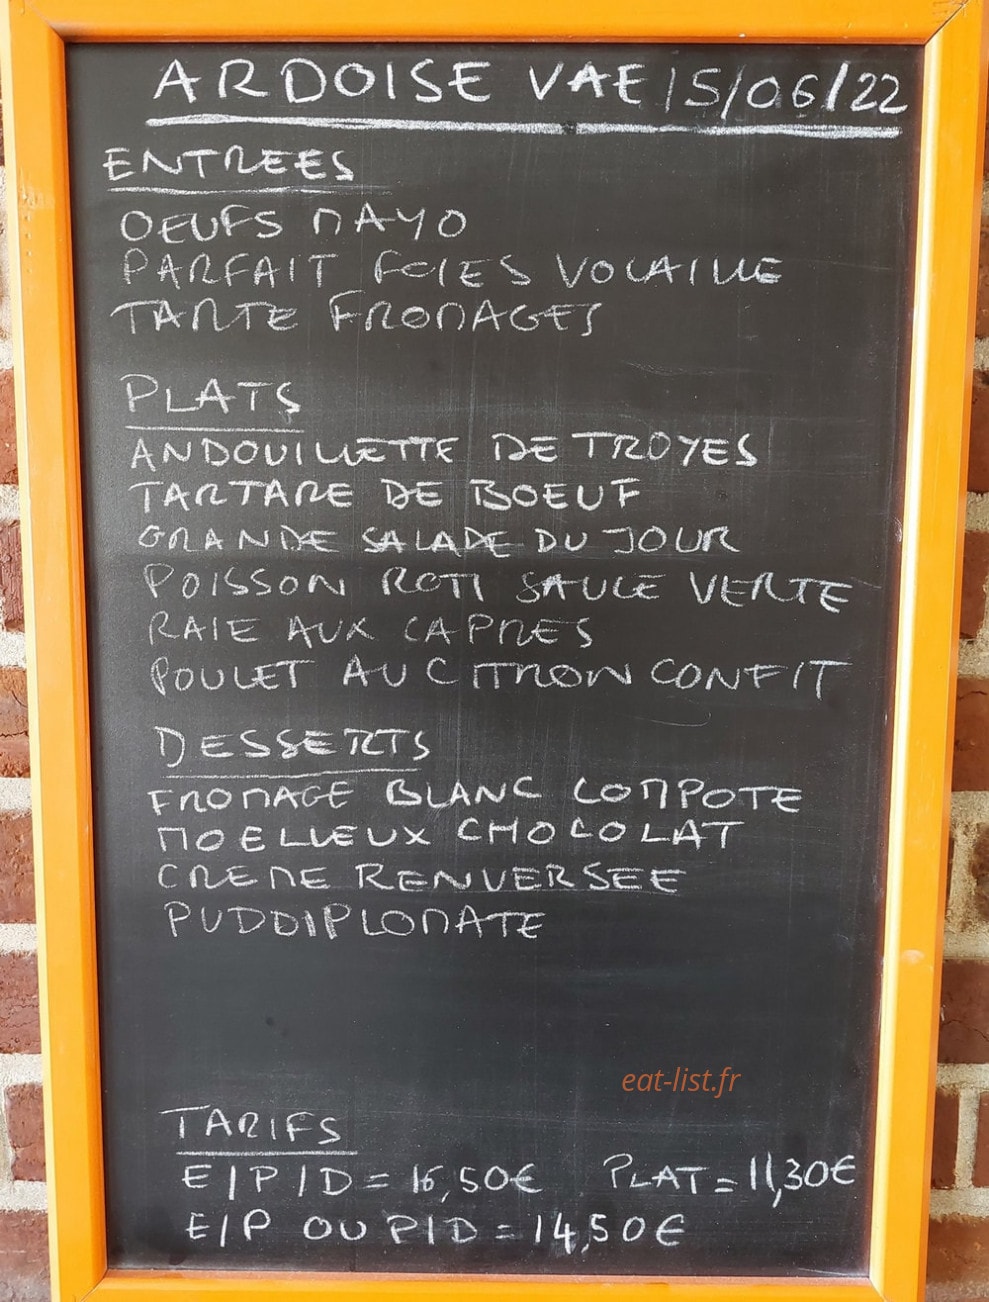 ARDOISE VAE 15/06/22
ENTREES
OEUFS MAYO
PARFAIT FOIES VOLAILLE
TARTE FROMAGES
PLATS
ANDOUILLETTE DE TROYES
TARTARE DE BOEUF
GRANDE SALADE DU JOUR
POISSON ROTI SAUCE VERTE
RAIE AUX CAPRES
POULET AU CITRON CONFIT
DESSERTS
FROMAGE BLANC COMPOTE
MOELLEUX CHOCOLAT
CREME RENVERSEE
PUDDIPLOMATE
eat-list.fr
TARIFS
E/P/D = 16,50€ PLAT = 11,30€
E/P OU P/D = 14,50€